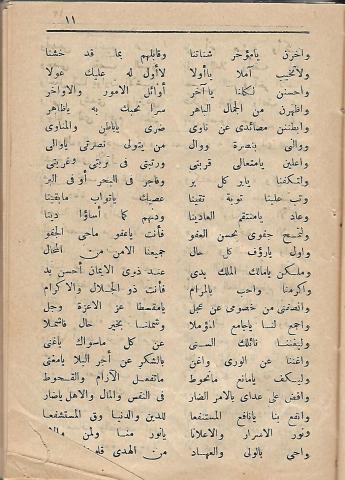 ١١
واخرن يامؤخر شناتنا وقابلهم بما قد خشنا
ولاتخيب آملا ياأولا لاأول له عليك عولا
واحسنن ياآخر أوائل الامور والاواخر
واظهرن من الجمال الباهر سرا نحبك به ياظاهر
وابطنن مصائدى عن ناوى ضرى ياباطن والمناوى
ووالنى بنصرة ووال من يتولى نصرتى ياوالى
واعلين يامتعالى قربتى ورتبتى فى وغربتى
ولتكفنا يابر كل بر وفاجر فى البحر أو فى البر
وتب علينا توبة تقينا عصيك ياتواب مابقينا
وعاد يامنتقم العادينا ودنهم كما أساؤا دينا
ولتمح جفوى بحسن العفو فأنت ياعفو ماحى الجفو
واول يارؤف كل حال جميعنا الامن من المحال
وملكن يامالك الملك يدى عند ذوى الايمان أحسن يد
واكرمنا واحب بالمرام فأنت ذو الجلال والاكرام
وانصفنى من خصومى عن عجل يامقسطا عز الاعزة وجل
واجمع لنا ياجامع المؤملا وشملنا بخير حال فاشملا
وليغننا نائلك السنى عن كل ماسواك ياغنى
واغننا عن الورى واغن بالشكر عن أخر البلا يامغنى
وليكف يامانع مانحوط ماتفعل الآرام والقحوط
واقض على عداى بالامر الضار فى النفس والمال والاهل ياضار
وانفع بنا يانافع المستنفعا للدين والدنيا وق المستشفعا
ونور الاسرار والاعلانا يانور منا ولمن
واحى بالولى والعهاد من الهدى